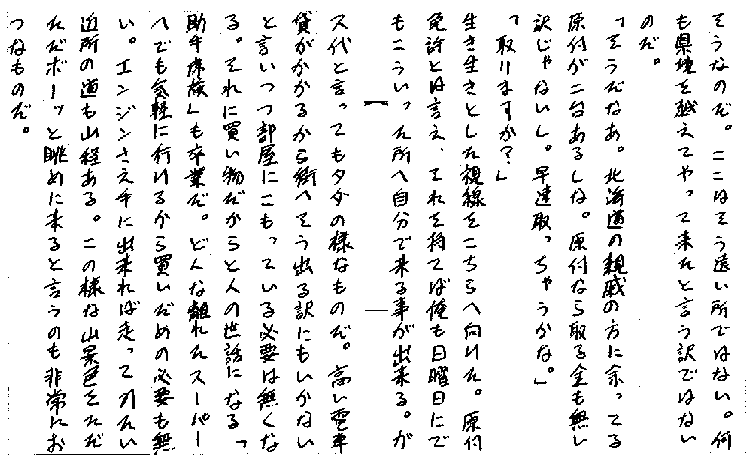 そうなのだ。ここはそう遠い所ではない。何
も県境を越えてやって来たと言う訳ではない
のだ。
「そうだなあ。北海道の親戚の方に余ってる
原付が二台あるしね。原付なら取る金も無い
訳じゃないし。早速取っちゃうかな。」
「取りますか？」
生き生きとした視線をこちらへ向けた。原付
免許とは言え、それを持てば俺も日曜日にで
もこういった所へ自分で来る事が出来る。が
ス代と言ってもタダの様なものだ。高い電車
賃がかかるから街へそう出る訳にもいかない
と言いつつ部屋にこもっている必要は無くな
る。それに買い物だからと人の世話になる「
助手席族」も卒業だ。どんな離れたスーパー
へでも気軽に行けるから買いだめの必要も無
い。エンジンさえ手に出来れば走ってれたい
近所の道も山程ある。この様な山景色をただ
ただボーッと眺めに来ると言うのも非常にお
つなものだ。